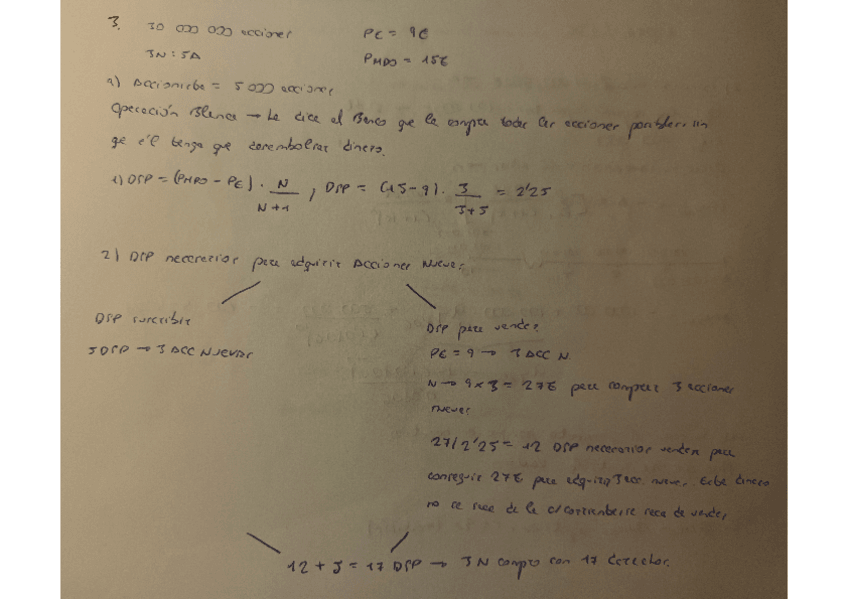 3. 30 000 000 acciones PE = 9€
3N : 5A PMDO = 15€
a) Accionista = 5 000 acciones
Operación Blanca → Le dice al Banco que le compre todas las acciones posibles sin
que él tenga que desembolsar dinero.
1) DSP = (PMDO - PE) · N / N+A , DSP = (15-9) · 3 / 3+5 = 2'25
2) DSP necesarios para adquirir Acciones Nuevas
DSP suscribir
5 DSP → 3 ACC NUEVAS
DSP para vender
PE = 9 → 1 ACC N.
N → 9 x 3 = 27€ para comprar 3 acciones
nuevas
27/2'25 = 12 DSP necesarios vender para
conseguir 27€ para adquirir 3 acc. nuevas. Este dinero
no se saca de la c/corriente se saca de vender
12 + 5 = 17 DSP → 3N compro con 17 derechos.